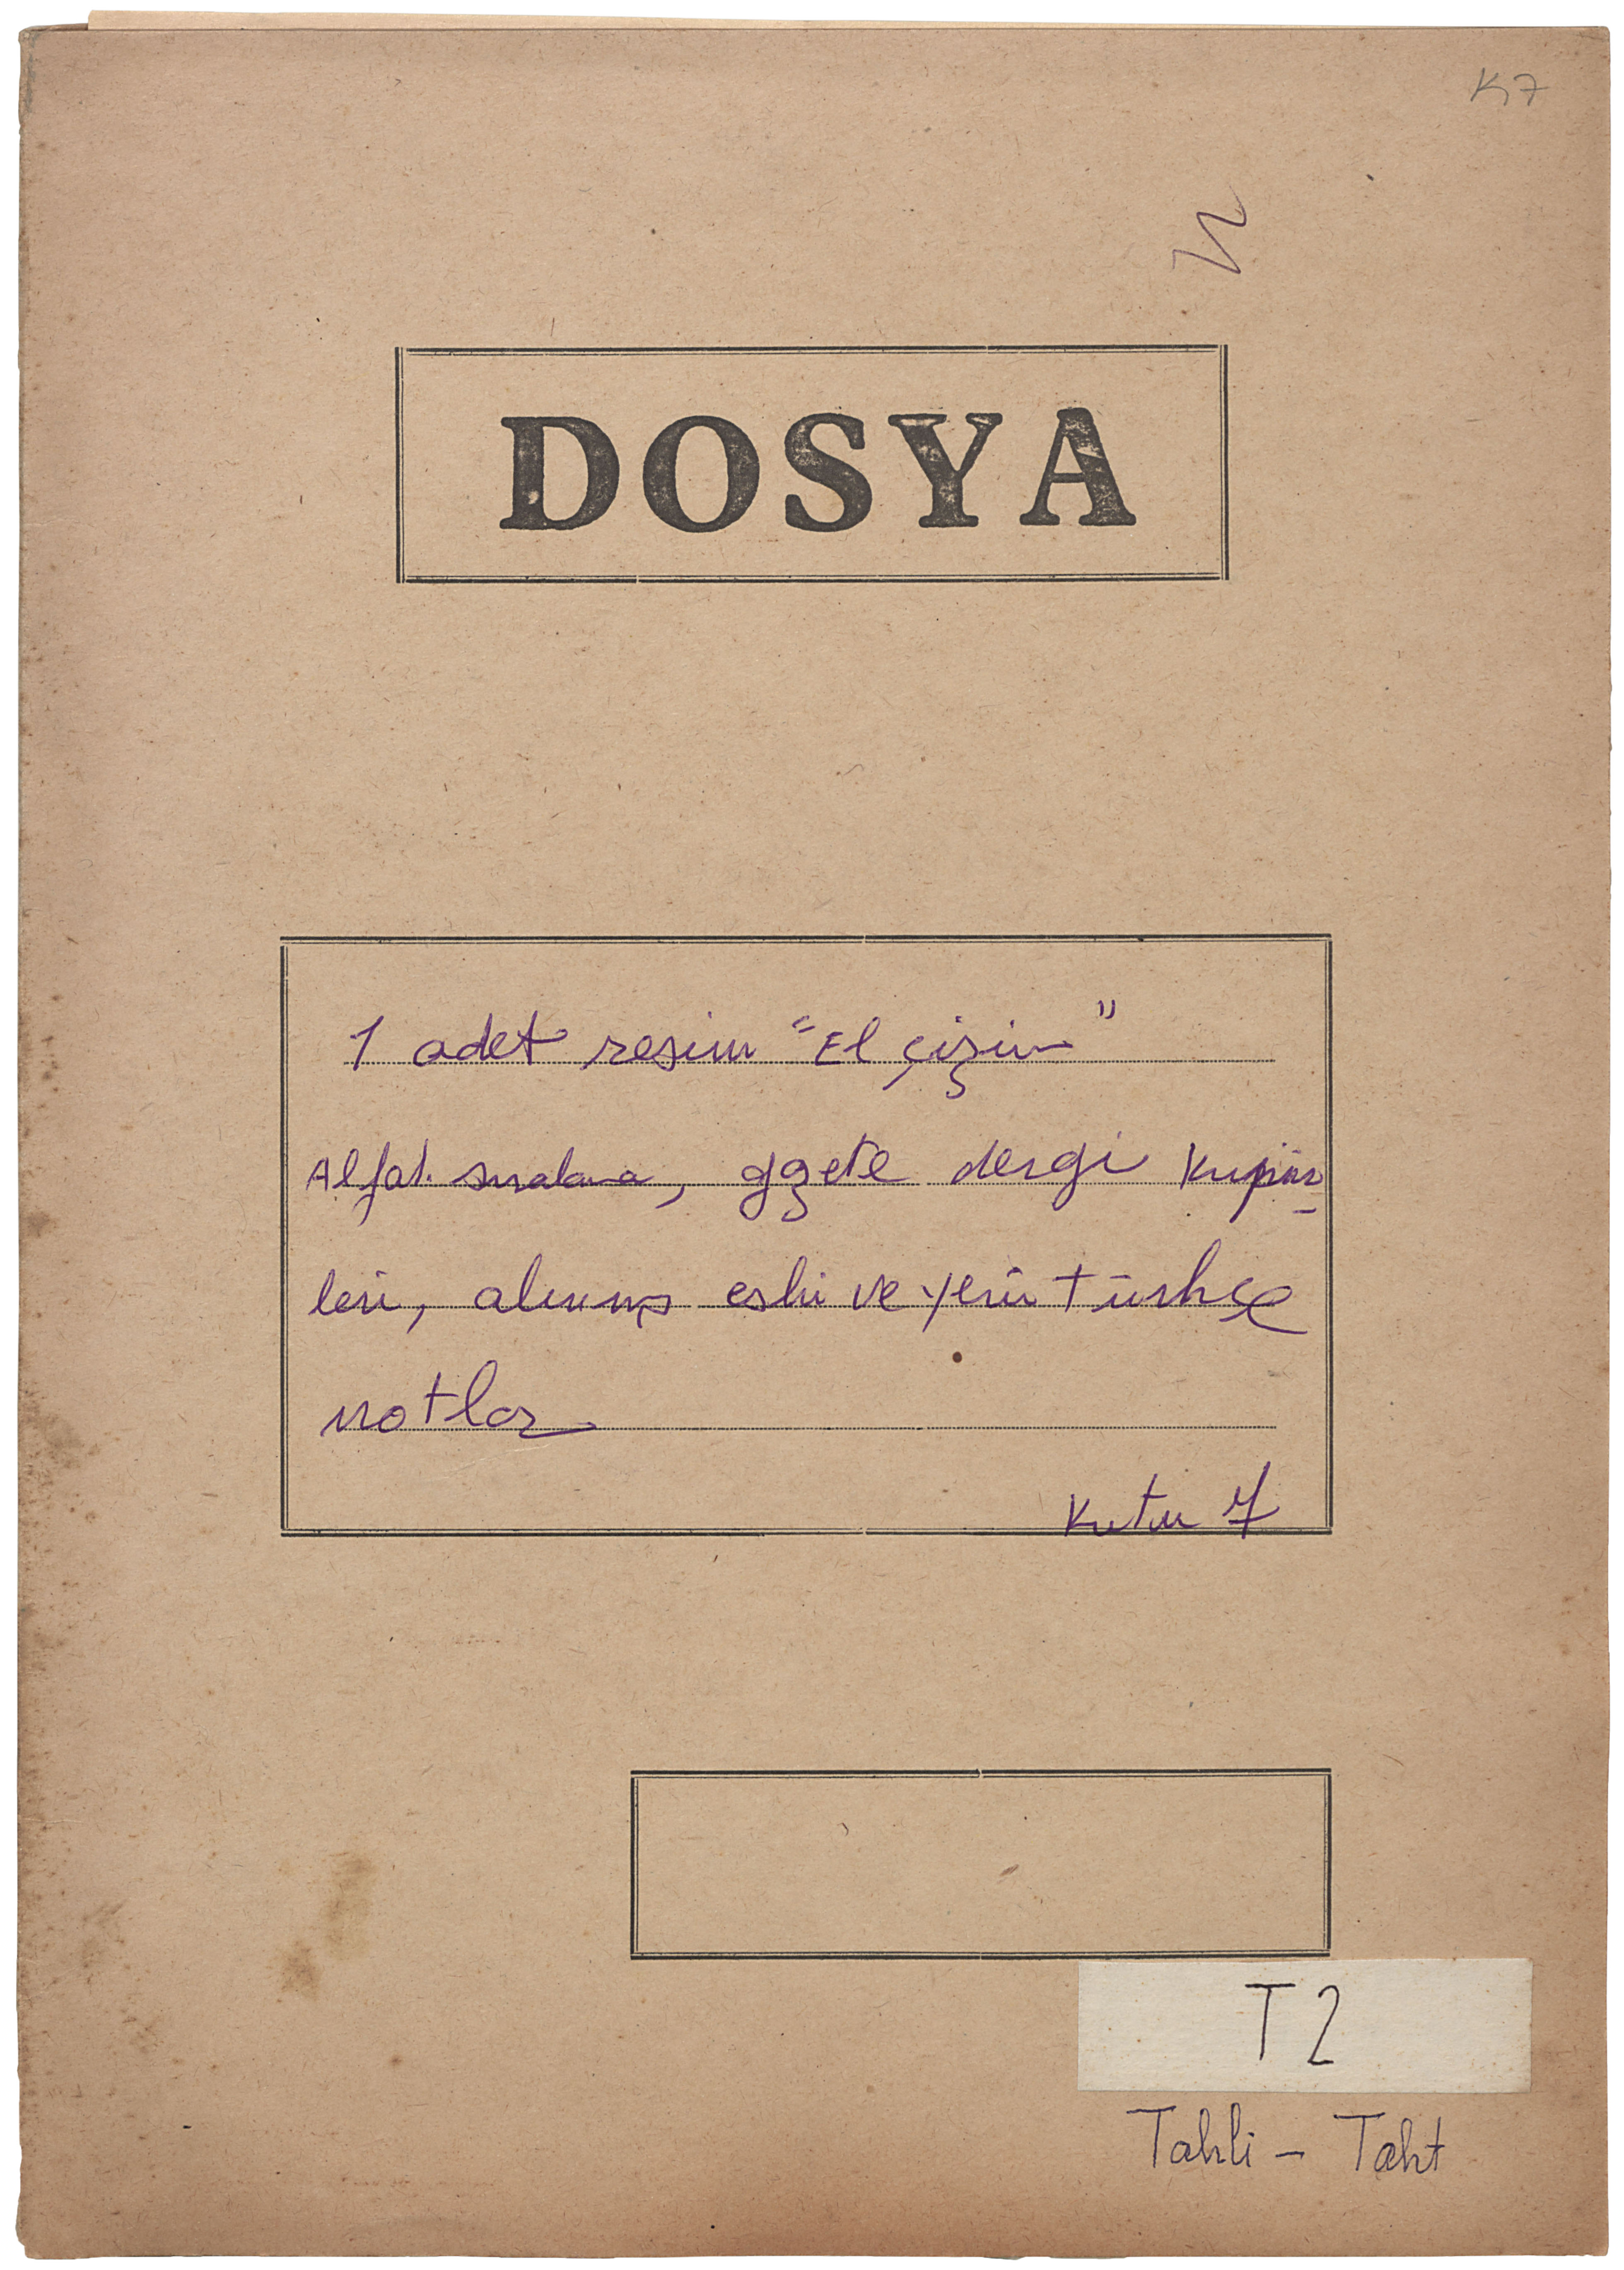 K7
DOSYA
1 adet resim "El çizim"
Alfab. sıralama, gzete dergi Kupür-
leri, alınmış eski ve yeni türkçe
notlar
Kutu 7
T 2
Tahli - Taht